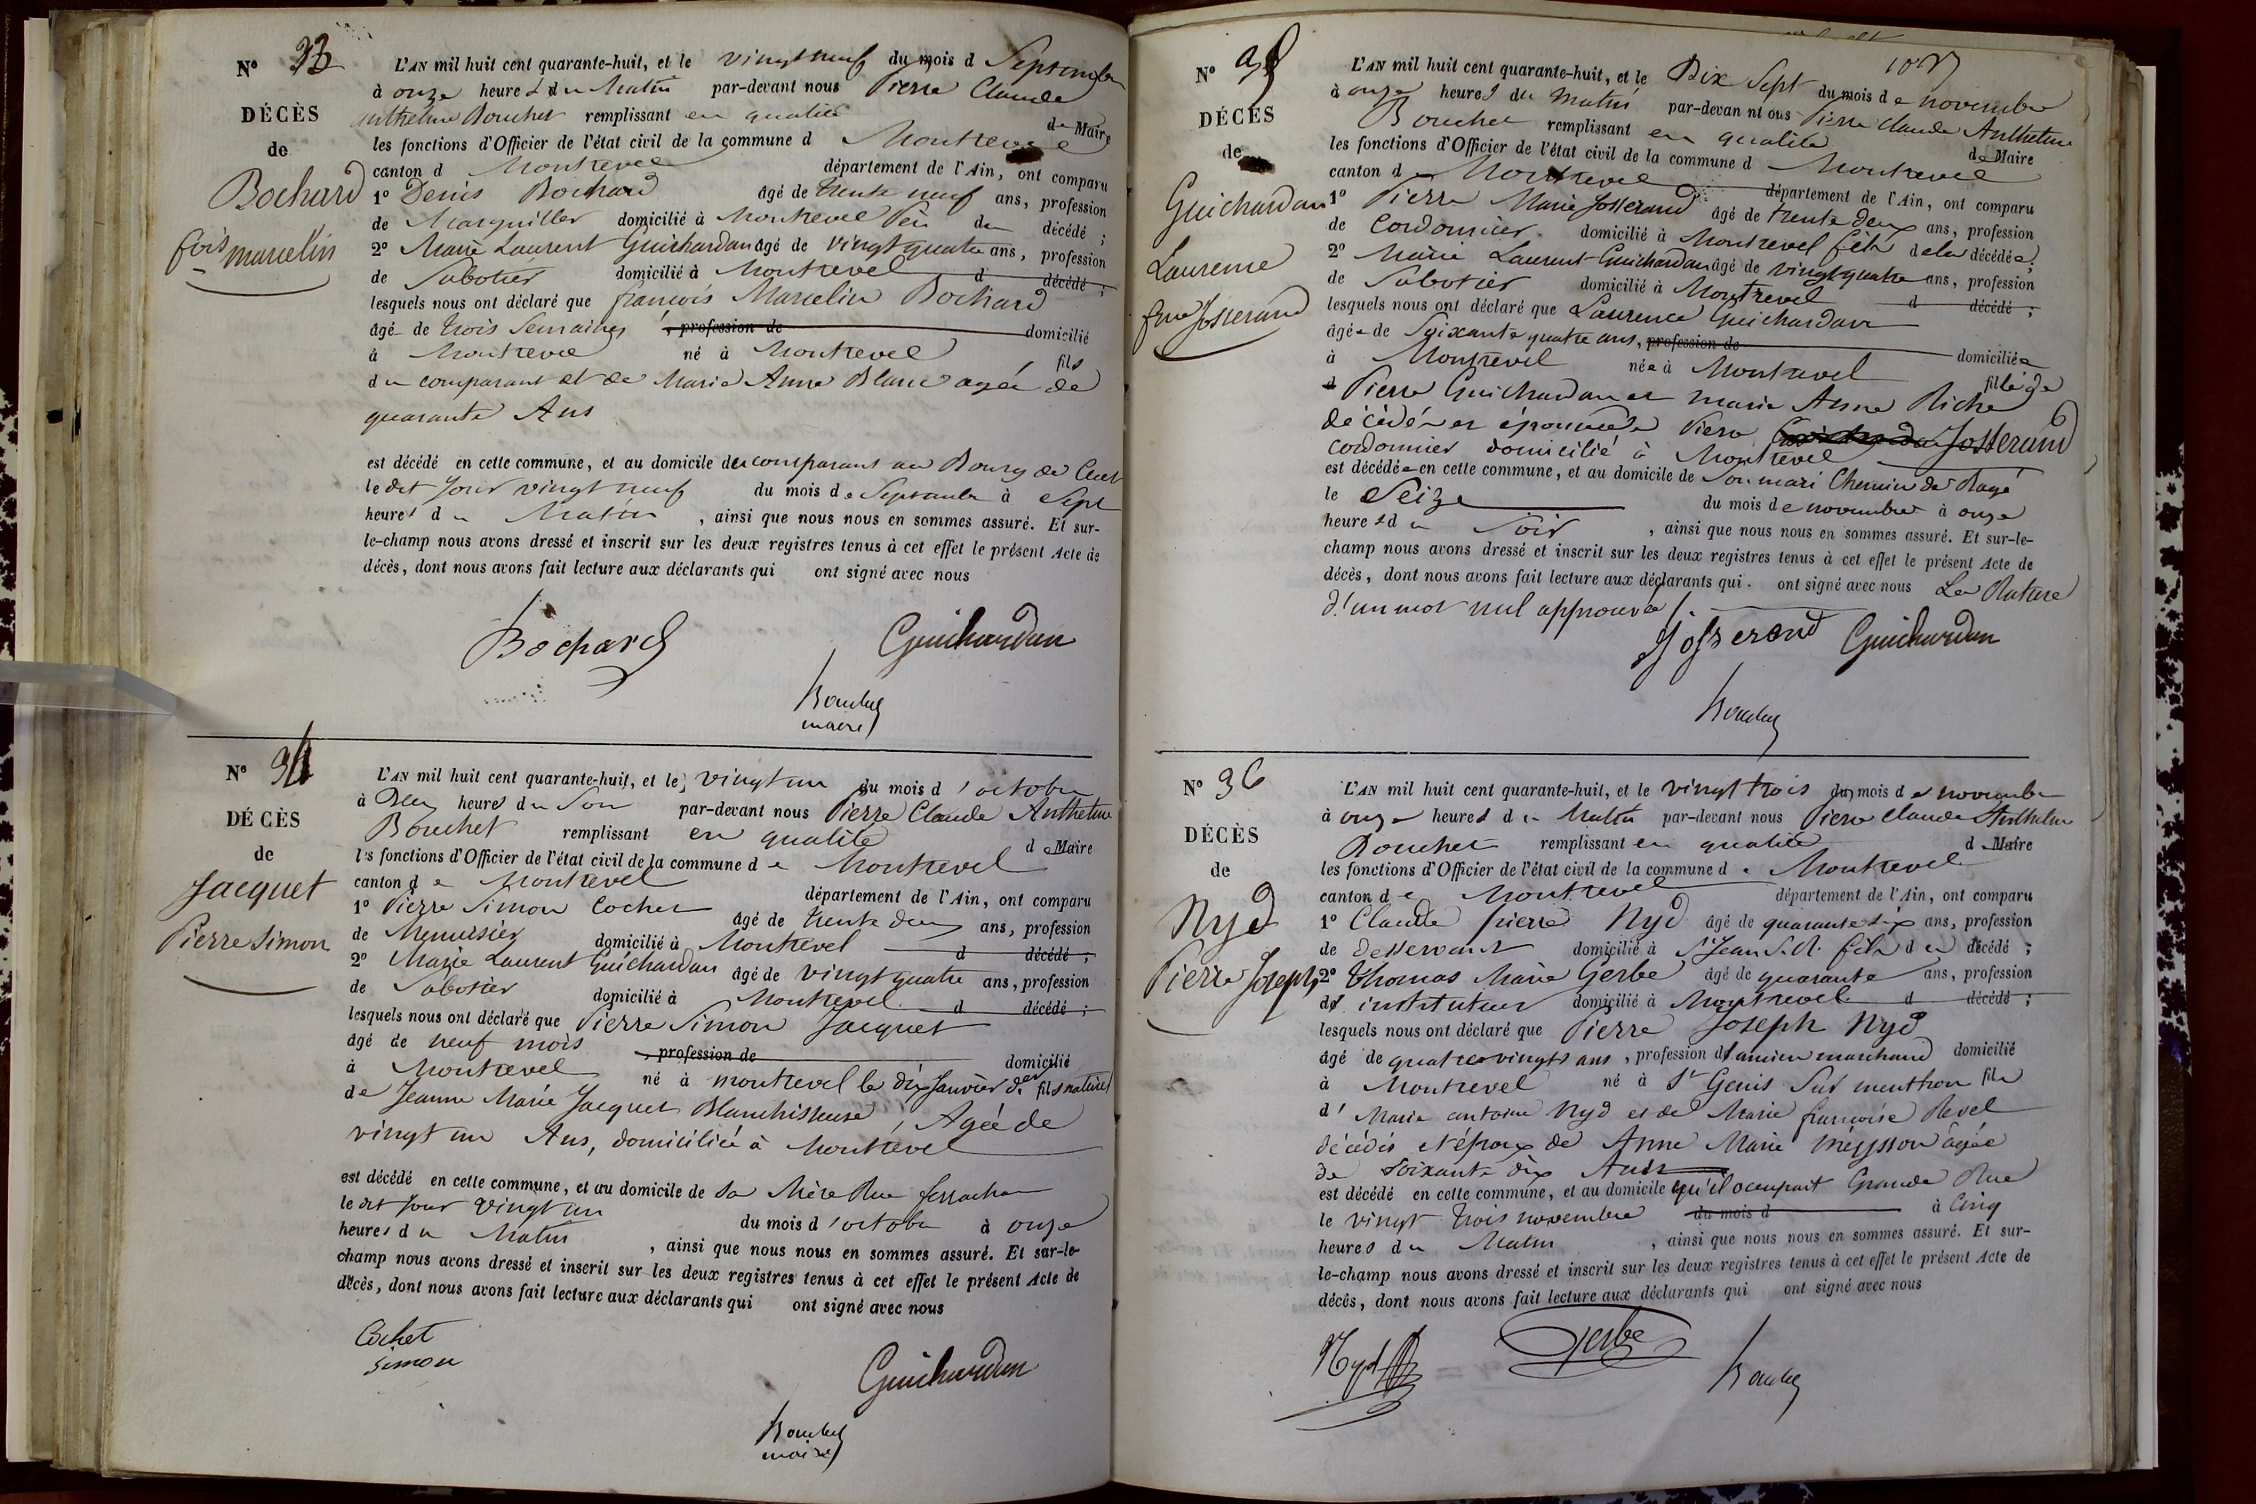 N° 33
DÉCÈS
de
Bochard
fois marcelin
L'AN mil huit cent quarante-huit, et le vingt neuf du mois d Septembre
à onze heures du Matin par-devant nous Pierre Claude
Anthelme Bouchet remplissant en qualité de Maire
les fonctions d'Officier de l'état civil de la commune d Montrevel
canton d Montrevel département de l'Ain, ont comparu
1° Denis Bochard âgé de trente neuf ans, profession
de Marguiller domicilié à Montrevel Père du décédé ;
2° Marie Laurent Guichardan âgé de vingt quatre ans, profession
de Sabotier domicilié à Montrevel d décédé ;
lesquels nous ont déclaré que françois Marcelin Bochard
âgé de trois Semaines , profession de domicilié
à Montrevel né à Montrevel fils
du comparant et de Marie Anne Blanc agée de
quarante Ans
est décédé en cette commune, et au domicile du comparant au Bourg de Cuet
le dit Jour vingt neuf du mois de Septembre à Sept
heures du Matin , ainsi que nous nous en sommes assuré. Et sur-
le-champ nous avons dressé et inscrit sur les deux registres tenus à cet effet le présent Acte de
décès, dont nous avons fait lecture aux déclarants qui ont signé avec nous
Bochard Guichardan
Bouchet
maire
N° 34
DÉCÈS
de
Jacquet
Pierre Simon
L'AN mil huit cent quarante-huit, et le vingt un du mois d'octobre
à Deux heures du Soir par-devant nous Pierre Claude Anthelme
Bouchet remplissant en qualité de Maire
les fonctions d'Officier de l'état civil de la commune de Montrevel
canton de Montrevel département de l'Ain, ont comparu
1° Pierre Simon Cochet âgé de trente deux ans, profession
de Menuisier domicilié à Montrevel d décédé ;
2° Marie Laurent Guichardan âgé de vingt quatre ans, profession
de Sabotier domicilié à Montrevel d décédé ;
lesquels nous ont déclaré que Pierre Simon Jacquet
âgé de neuf mois , profession de domicilié
à Montrevel né à montrevel le dix Janvier der fils naturel
de Jeanne Marie Jacquet Blanchisseuse, Agée de
vingt un Ans, domiciliée à Montrevel
est décédé en cette commune, et au domicile de sa Mère Rue
le dit Jour vingt un du mois d'octobre à onze
heures du Matin , ainsi que nous nous en sommes assuré. Et sur-le-
champ nous avons dressé et inscrit sur les deux registres tenus à cet effet le présent Acte de
décès, dont nous avons fait lecture aux déclarants qui ont signé avec nous
Cochet
simon
Guichardan
Bouchet
maire
N° 35
DÉCÈS
de
Guichardan
Laurence
fme Josserand
L'AN mil huit cent quarante-huit, et le Dix Sept du mois de novembre
à onze heures du matin par-devant nous Pierre Claude Anthelme
Bouchet remplissant en qualité de Maire
les fonctions d'Officier de l'état civil de la commune d Montrevel
canton de Montrevel département de l'Ain, ont comparu
1° Pierre Marie Josserand âgé de trente deux ans, profession
de Cordonnier domicilié à Montrevel fils de la décédée ;
2° Marie Laurent Guichardan âgé de vingt quatre ans, profession
de Sabotier domicilié à Montrevel d décédé ;
lesquels nous ont déclaré que Laurence Guichardan
âgée de Soixante quatre ans, profession de domiciliée
à Montrevel née à Montrevel fille de
Pierre Guichardan et marie Anne Riche
décédés et épouse de Pierre Josserand
cordonnier domicilié à Montrevel
est décédée en cette commune, et au domicile de Son mari Chemin de
le Seize du mois de novembre à onze
heures du Soir , ainsi que nous nous en sommes assuré. Et sur-le-
champ nous avons dressé et inscrit sur les deux registres tenus à cet effet le présent Acte de
décès, dont nous avons fait lecture aux déclarants qui ont signé avec nous La Rature
d'un mot nul approuvée
Josserand Guichardan
Bouchet
N° 36
DÉCÈS
de
Nyd
Pierre Joseph
L'AN mil huit cent quarante-huit, et le vingt trois du mois de novembre
à onze heures du Matin par-devant nous Pierre Claude Anthelme
Bouchet remplissant en qualité d Maire
les fonctions d'Officier de l'état civil de la commune de Montrevel
canton de Montrevel département de l'Ain, ont comparu
1° Claude pierre Nyd âgé de quarante six ans, profession
de desservant domicilié à St Jean S. R. fils du décédé ;
2° Thomas Marie Gerbe âgé de quarante ans, profession
d'instituteur domicilié à Montrevel d décédé ;
lesquels nous ont déclaré que Pierre Joseph Nyd
âgé de quatre vingts ans, profession d'ancien marchand domicilié
à Montrevel né à St Genis Sur menthon fils
d'Marie antoine Nyd et de Marie françoise Revel
décédés et époux de Anne Marie agée
de Soixante dix Ans
est décédé en cette commune, et au domicile qu'il occupait Grande Rue
le vingt trois novembre du mois d à Cinq
heures du Matin , ainsi que nous nous en sommes assuré. Et sur-
le-champ nous avons dressé et inscrit sur les deux registres tenus à cet effet le présent Acte de
décès, dont nous avons fait lecture aux déclarants qui ont signé avec nous
Nyd Gerbe Bouchet